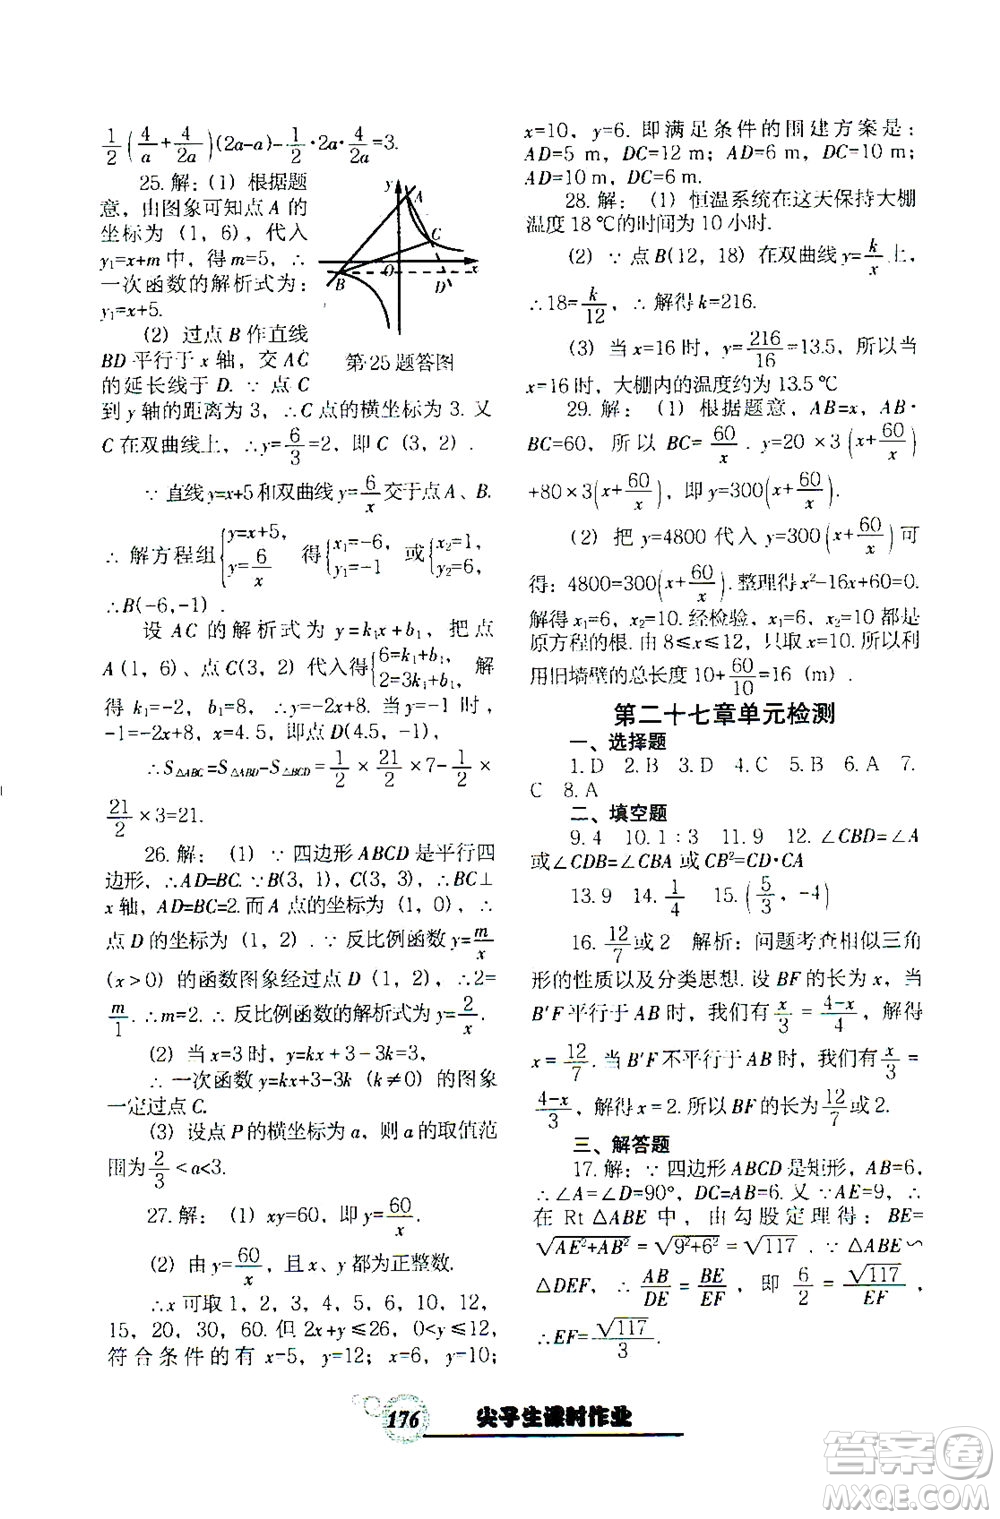 1/2(4/a+4/2a)(2a-a)-1/2·2a·4/2a=3.
25. 解：(1) 根据题
意，由图象可知点 A 的
坐标为 (1, 6)，代入
y₁=x+m 中，得 m=5, ∴
一次函数的解析式为：
y₁=x+5.
(2) 过点 B 作直线
BD 平行于 x 轴，交 AC
的延长线于 D. ∵ 点 C
y A C O x B D
第 25 题答图
到 y 轴的距离为 3, ∴C 点的横坐标为 3. 又
C 在双曲线上, ∴y=6/3=2, 即 C (3, 2) .
∵ 直线 y=x+5 和双曲线 y=6/x 交于点 A、B.
∴ 解方程组{y=x+5, y=6/x 得{x₁=-6, y₁=-1 或{x₂=1, y₂=6,
∴B(-6,-1) .
设 AC 的解析式为 y=k₁x+b₁，把点
A(1, 6)、点 C(3, 2) 代入得{6=k₁+b₁, 2=3k₁+b₁ 解
得 k₁=-2, b₁=8, ∴y=-2x+8, 当 y=-1 时,
-1=-2x+8, x=4.5, 即点 D(4.5, -1),
∴S△ABC=S△ABD-S△BCD=1/2×21/2×7-1/2×
21/2×3=21.
26. 解：(1) ∵ 四边形 ABCD 是平行四
边形, ∴AD=BC. ∵B(3, 1), C(3, 3), ∴BC⊥
x 轴, AD=BC=2. 而 A 点的坐标为 (1, 0), ∴
点 D 的坐标为 (1, 2) . ∵ 反比例函数 y=m/x
(x>0) 的函数图象经过点 D (1, 2), ∴2=
m/1. ∴m=2. ∴ 反比例函数的解析式为 y=2/x.
(2) 当 x=3 时, y=kx+3-3k=3,
∴ 一次函数 y=kx+3-3k (k≠0) 的图象
一定过点 C.
(3) 设点 P 的横坐标为 a, 则 a 的取值范
围为2/3<a<3.
27. 解：(1) xy=60, 即 y=60/x.
(2) 由 y=60/x, 且 x、y 都为正整数.
∴x 可取 1, 2, 3, 4, 5, 6, 10, 12,
15, 20, 30, 60. 但 2x+y≤26, 0<y≤12,
符合条件的有 x=5, y=12; x=6, y=10;
x=10, y=6. 即满足条件的围建方案是：
AD=5 m, DC=12 m; AD=6 m, DC=10 m;
AD=10 m, DC=6 m.
28. 解：(1) 恒温系统在这天保持大棚
温度 18 ℃的时间为 10 小时.
(2) ∵ 点 B(12, 18) 在双曲线 y=k/x上,
∴18=k/12, ∴ 解得 k=216.
(3) 当 x=16 时, y=216/16=13.5, 所以当
x=16 时, 大棚内的温度约为 13.5 ℃
29. 解：(1) 根据题意, AB=x, AB·
BC=60, 所以 BC=60/x. y=20×3(x+60/x)
+80×3(x+60/x), 即 y=300(x+60/x).
(2) 把 y=4800 代入 y=300(x+60/x)可
得: 4800=300(x+60/x). 整理得 x²-16x+60=0.
解得 x₁=6, x₂=10. 经检验, x₁=6, x₂=10 都是
原方程的根. 由 8≤x≤12, 只取 x=10. 所以利
用旧墙壁的总长度 10+60/10=16 (m) .
第二十七章单元检测
一、选择题
1. D 2. B 3. D 4. C 5. B 6. A 7.
C 8. A
二、填空题
9. 4 10. 1:3 11. 9 12. ∠CBD=∠A
或∠CDB=∠CBA 或 CB²=CD·CA
13. 9 14. 1/4 15. (5/3, -4)
16. 12/7或 2 解析：问题考查相似三角
形的性质以及分类思想. 设 BF 的长为 x, 当
B′F 平行于 AB 时, x/3=4-x/4, 解得
x=12/7. 当 B′F 不平行于 AB 时, 所以 x/3=
4-x/3, 解得 x=2. 所以 BF 的长为12/7或 2.
三、解答题
17. 解：∵ 四边形 ABCD 是矩形, AB=6,
∴∠A=∠D=90°, DC=AB=6. 又 ∵AE=9, ∴
在 Rt △ABE 中, 由勾股定理得: BE=
√AE²+AB²=√9²+6²=√117. ∵△ABE∽
△DEF, ∴ AB/DE=BE/EF, 即 6/2=√117/EF,
∴EF=√117/3.
176 尖子生课时作业
答案圈
MXQE.COM